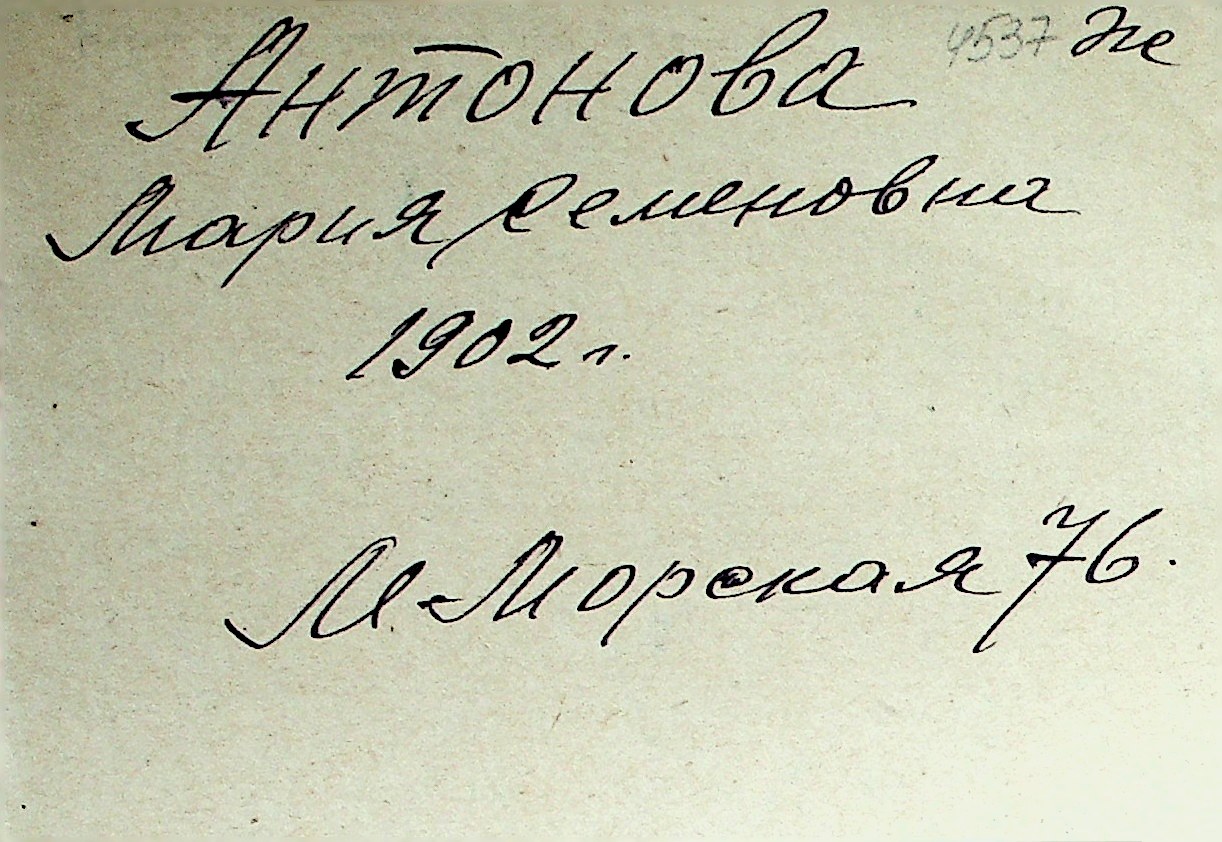 4537 Же
Антонова
Мария Семеновна
1902 г.
М-Морская 76.